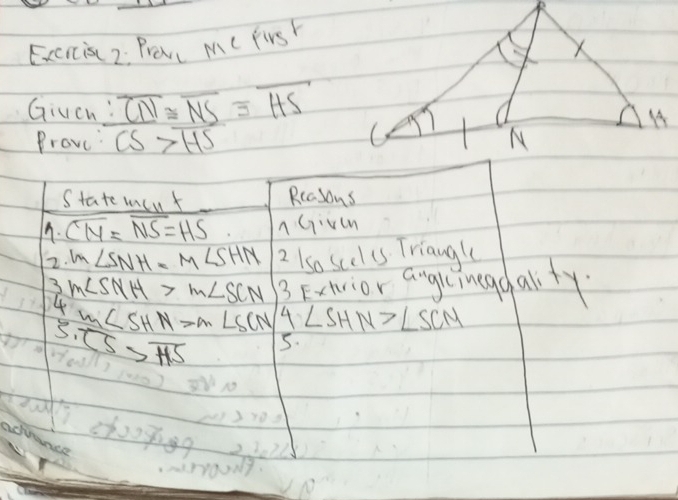 Exercise 2: Prove Me First
Given: CN ≅ NS ≅ HS
Prove: CS > HS
C N H
Statement Reasons
1. CN = NS = HS 1. Given
2. m∠SNH = m∠SHN 2 Isosceles Triangle
3 m∠SNH > m∠SCN 3 Extrior angle inequality.
4 m∠SHN > m∠SCN 4. ∠SHN > ∠SCN
5. CS > HS 5.
advance
theorem.